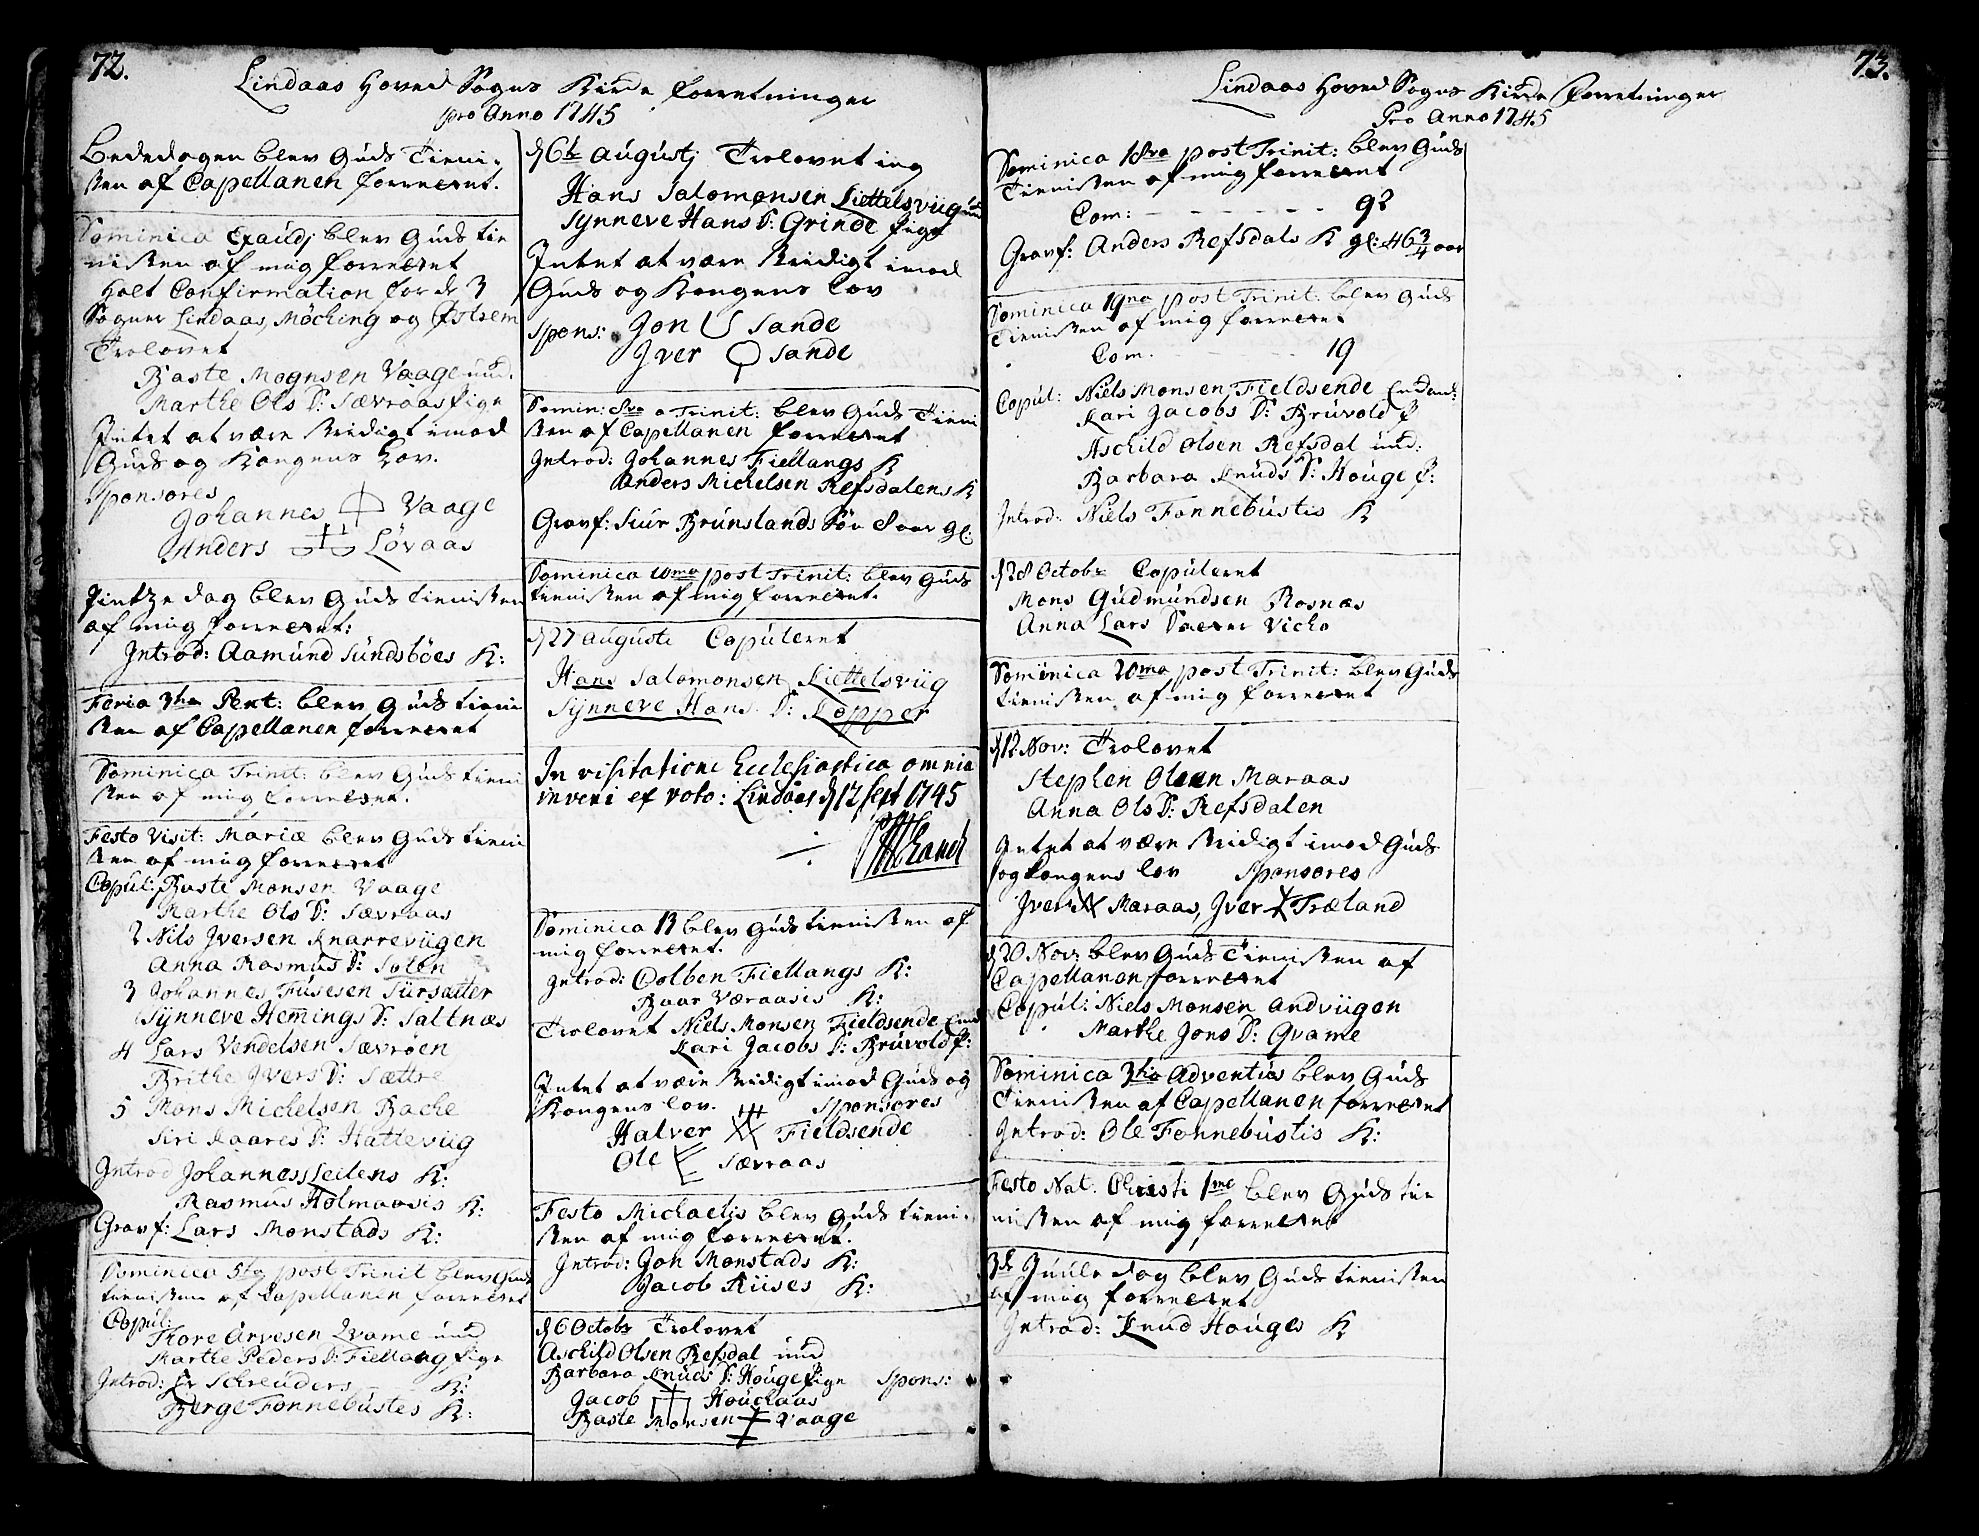 72.
Lindaas Hoved Sogns Kirke forretninger
pro Anno 1745
Bededagen blev Guds Tieni-
sten af Capellanen forrettet.
Dominica Exaudj blev Guds tie
nisten af mig forrettet
Holt Confirmation for de 3
Sogner Lindaas, Möching og Østrem
Trolovet
Baste Mognsen Vaage und.
Marthe Ols D: Sævraas Pige
Intet at være stridigt imod
Guds og Kongens Lov.
Sponsores
Johannes Vaage
Anders Løvaas
Pintze dag blev Guds tienisten
af mig forrettet:
Introd: Aamund Sundsböes K:
Feria 3tia Pent: blev Guds tieni
sten af Capellanen forrettet
Dominica Trinit: blev Guds tieni
sten af mig forrettet.
Festo Visit: Mariæ blev Guds tieni
sten af mig forrettet
Copul: Baste Monsen Vaage
Marthe Ols D: Sævraas
2 Nils Iversen Knarreviigen
Anna Rasmus D: Solen
3 Johannes Fusesen Sursætter
Synneve Hemmings D: Saltnæs
4 Lars Vendelsen Sævröen
Brithe Ivers D: Sættre
5 Mons Michelsen Bache
Siri Kaares D: Hatteviig
Introd Johannes Leilens K:
Rasmus Holmaasis K:
Gravf: Lars Monstads K:
Dominica 5ta post Trinit blev Guds
tienisten af Capellanen forrettet
Copul:
Thore Arvesen Qvame und
Marthe Peders D: Fiellang Pige
Introd: Hr Schreuders K:
Berge Fonnebustes K:
d 6te Augustj Trolovet ing
Hans Salomonsen Liettelsviig und
Synneve Hans D: Grinde Pige
Intet at være stridigt imod
Guds og Kongens Lov
Spons: Jon Sande
Iver Sande
Domin: 8va a Trinit: blev Guds Tieni
sten af Capellanen forrettet
Introd: Johannes Fiellangs K
Anders Michelsen Refsdalens K
Gravf: Siur Brunslands Søn 8 aar gl:
Dominica 10ma post Trinit: blev Guds
tienisten af mig forrettet.
d 27 Augusti Copuleret
Hans Salomonsen Liettelsviig
Synneve Hans D: Lopper
In visitatione Ecclesiastica omnia
inveni ex voto: Lindaas d 12 Sept 1745
Dominica 13 blev Guds tienisten af
mig forrettet.
Introd: Colben Fiellangs K:
Baar Væraasis K:
Trolovet Niels Monsen Fieldsende Und
Kari Jacobs D: Bruvold P:
Intet at være stridigt imod Guds og
Kongens lov. Sponsores
Halver Fieldsende
Ole Sævraas
Festo Michaelis blev Guds tieni-
sten af mig forrettet.
Introd: Jon Monstads K:
Jacob Riises K:
d 6 Octobr Trolovet
Aschild Olsen Refsdal und
Barbara Knuds D: Houge Pige Spons:
Jacob Houchaas
Baste Monsen Vaage
73.
Lindaas Hoved Sogns Kirke forretninger
Pro Anno 1745
Dominica 18va post Trinit: blev Guds
Tienisten af mig forrettet
Com: - - - - - - 92
Gravf: Anders Refsdals K gl: 46 3/4 aar
Dominica 19na post Trinit: blev Guds
Tienisten af mig forrettet
Com. 19
Copul: Niels Monsen Fieldsende
Kari Jacobs D: Bruvold P
Aschild Olsen Refsdal und:
Barbara Knuds D: Houge P:
Introd: Niels Fonnebustis K
d 28 Octobr Copuleret
Mons Gudmundsen Rosnæs
Anna Lars Datter Vicho
Dominica 20ma post Trinit: blev Guds
tienisten af mig forrettet
d 12 Nov: Trolovet
Stephen Olsen Maraas
Anna Ols D: Refsdalen
Intet at være stridigt imod Guds
og Kongens lov Sponsores
Iver Maraas, Iver Træland
d 20 Nov: blev Guds Tienisten af
Capellanen forrettet
Copul: Niels Monsen Andviigen
Marthe Jons D: Qvame
Dominica 3tia Adventus blev Guds
Tienisten af Capellanen forrettet
Introd: Ole Fonnebustis K:
Festo Nat. Christi 1me blev Guds tie
nisten af mig forrettet
3de Juule dag blev Guds tienisten
af mig forrettet
Introd: Knud Houges K